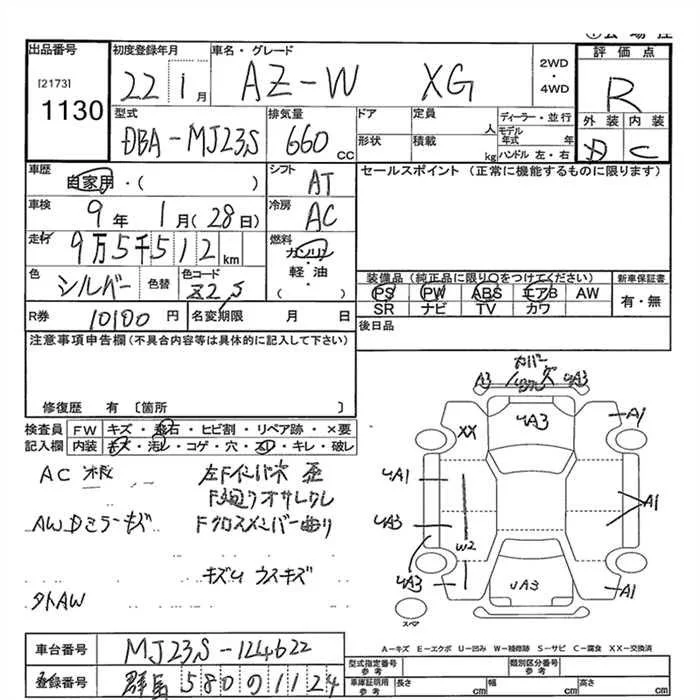 出品番号 初度登録年月 車名・グレード 2WD 評価点
[2173] 22 1月 AZ-W XG ・4WD R
1130 型式 排気量 ドア 定員 人 ディーラー・並行 外装 内装
DBA-MJ23S 660 CC 形状 積載 kg モデル年式 年 ハンドル 左・右 D C
車歴 自家用・( ) シフト AT セールスポイント (正常に機能するものに限ります)
車検 9年 1月(28日) 冷房 AC
走行 9万5千512km 燃料 ガソリン
軽油
( )
色 シルバー 色替 色コード Z2S 装備品(純正品に限り○をつけてください) 新車保証書
PS PW ABS エアB AW 有・無
SR ナビ TV カワ
R券 10100円 名変期限 月 日 後日品
注意事項申告欄(不具合内容等は具体的に記入して下さい)
修復歴 有 〔箇所 〕
検査員 FW キズ・飛石・ヒビ割・リペア跡・×要
記入欄 内装 キズ・汚レ・コゲ・穴・スレ・キレ・破レ
AC
AWDミラーキズ Fクロスメンバー曲り
キズU ウスキズ
外AW
カバー
A3 UA3
UA3 A1
XX
UA1
A1
UA3
W2
UA3 UA3 A1
スペア
A-キズ E-エクボ U-凹み W-補修跡 S-サビ C-腐食 XX-交換済
車台番号 MJ23S-124622
型式指定番号 参考 類別区分番号 参考
登録番号 群馬 580 の 1124
車庫証明用 参考 長さ cm 幅 cm 高さ cm